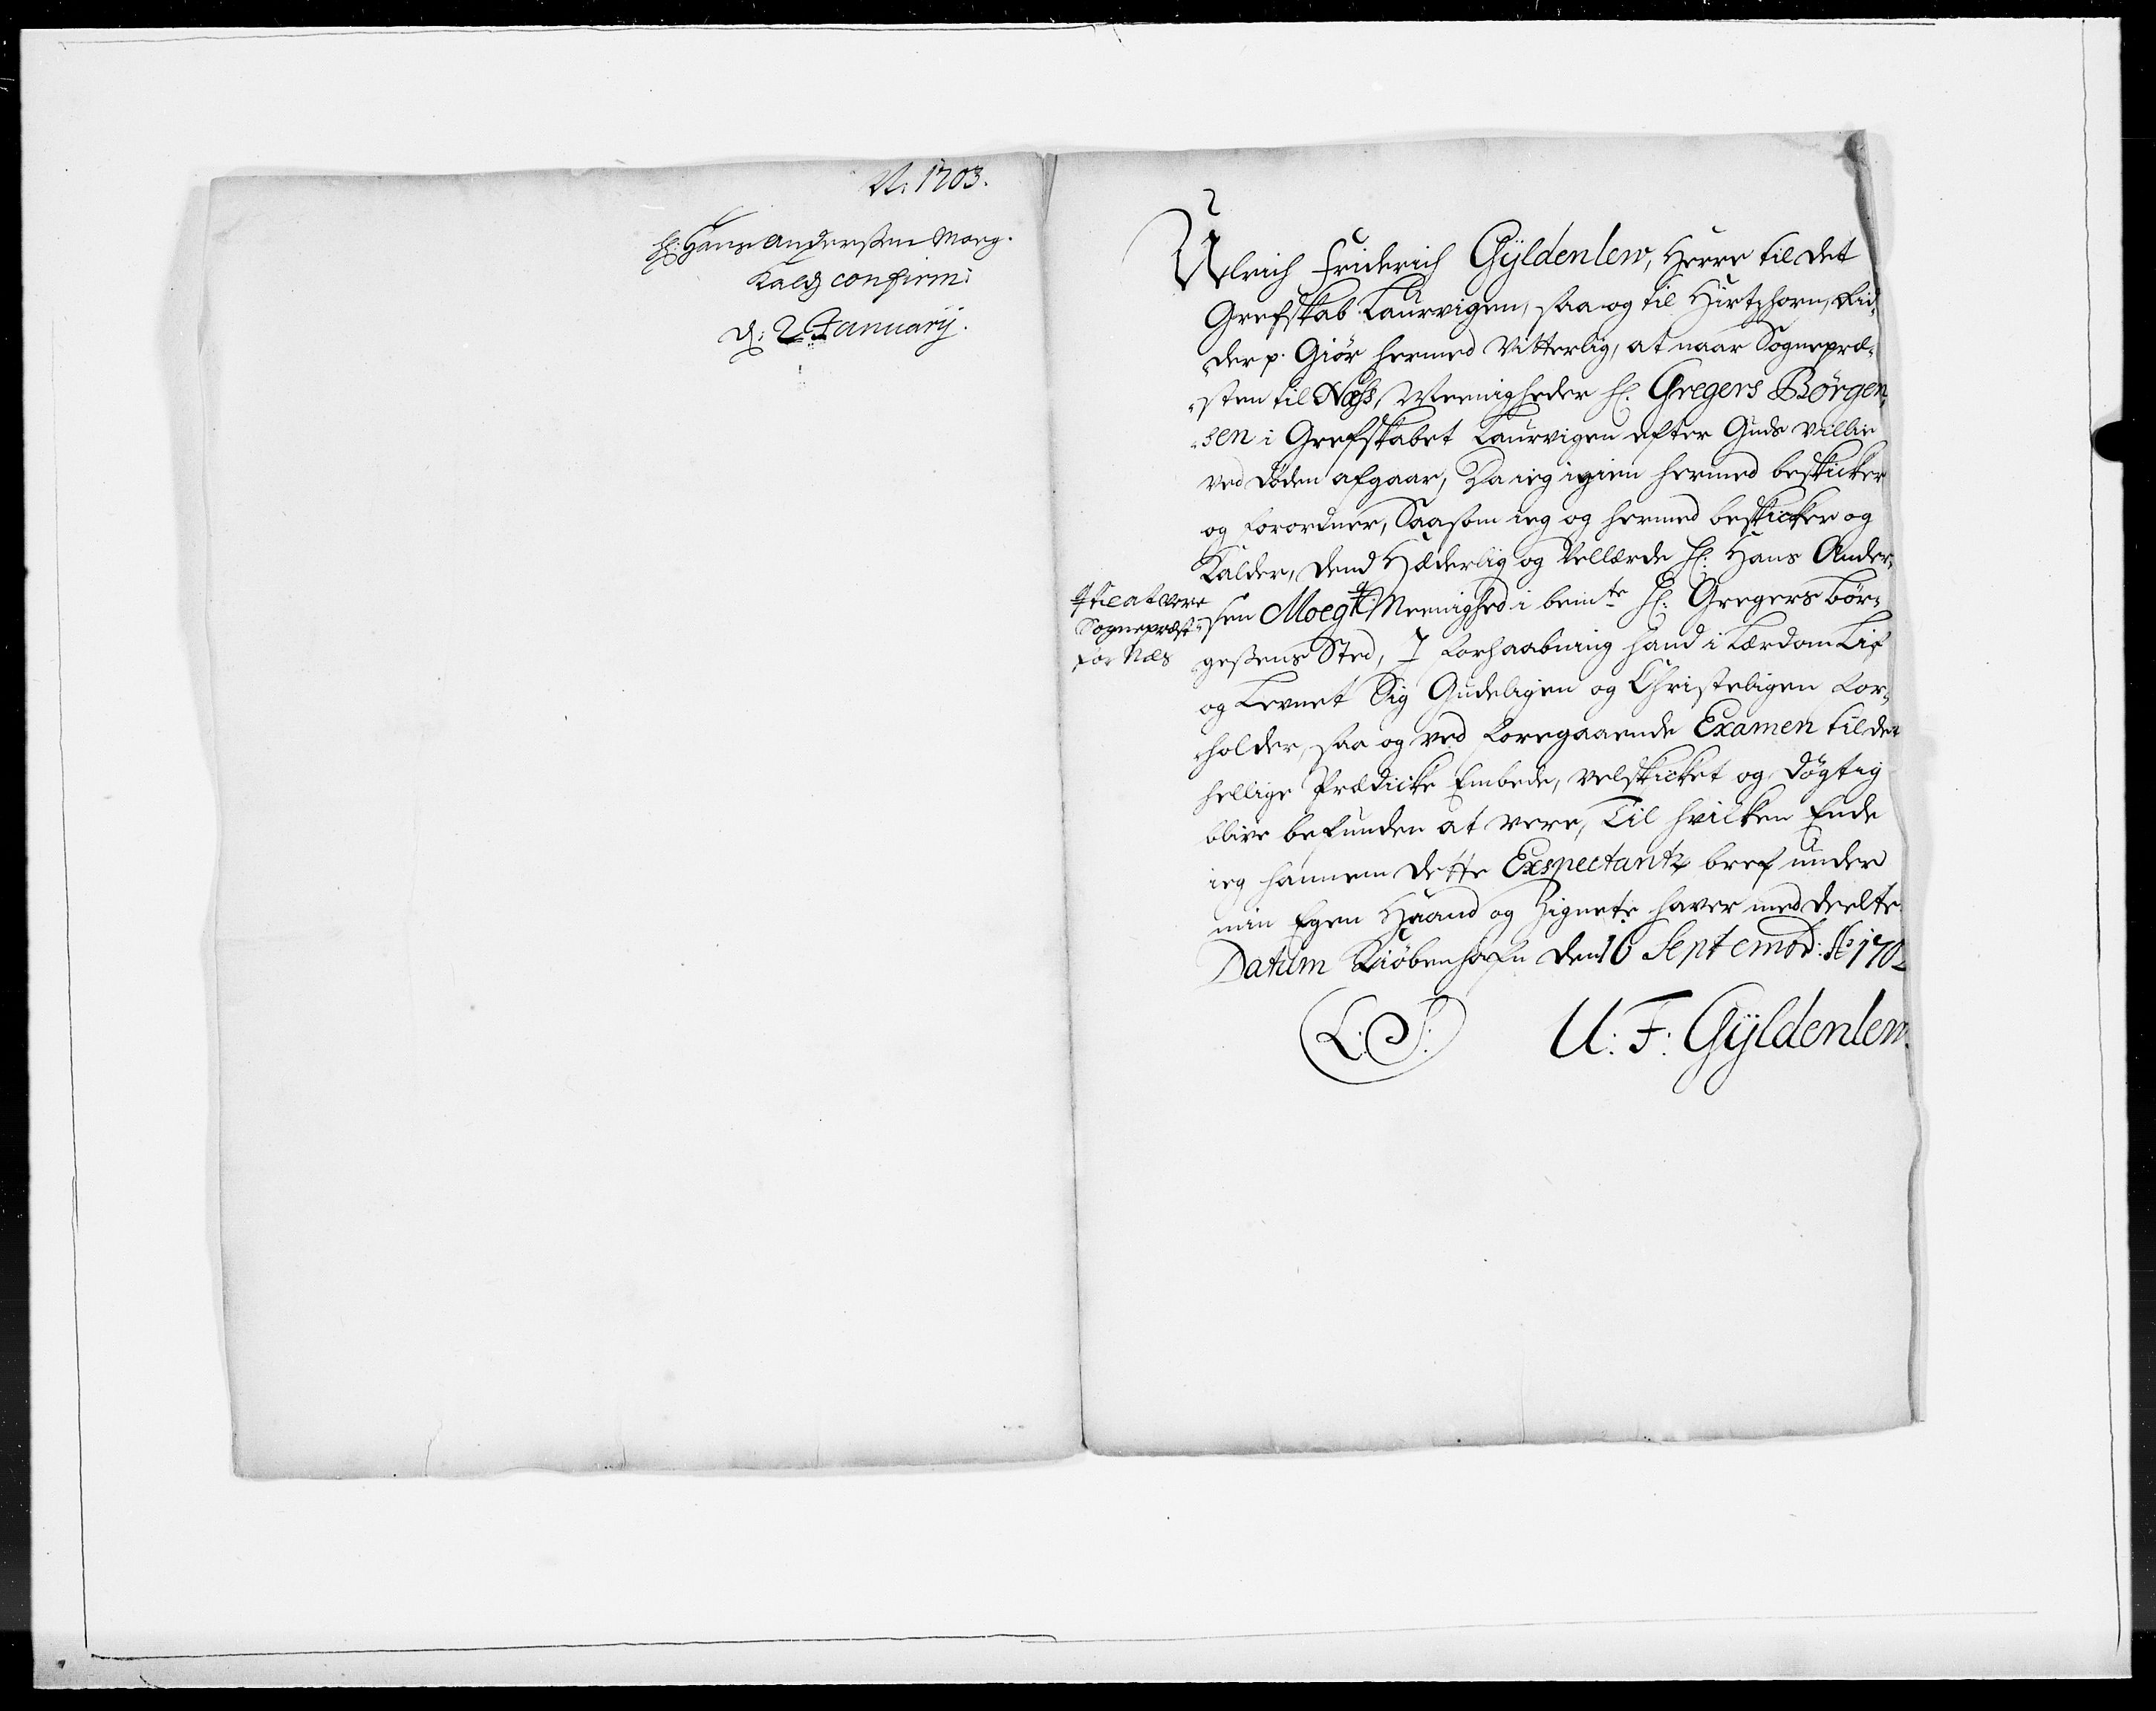 A: 1703.
H: Hans Anderssen Moeg.
Kald confirm:
d: 2. January.
Ulrich Friderich Gyldenlew, Herre til det
Grefskab Laurvigen, saa og til Hirtzhorn, Rid¬
der p. Giør hermed Vitterlig, at naar Sogne præ¬
sten til Næss, Meenigheder H. Gregers Börgen¬
sen i Grefskabet Laurvigen efter Guds villie
ved døden afgaar, Da ieg igien hermed beskicker
og forordner, Saasom ieg og hermed beskicker og
Kalder, dend Hæderlig og Vellærde H: Hans Ander¬
sen Moeg # Meenighed i bemte H: Gregers Bör¬
# til at vere
Sognepræst
for Næs
gessens Sted, I forhaabning hand i Lærdom Lif
og Levnet Sig Gudeligen og Christeligen for¬
holder, saa og ved foregaaende Examen til det
hellige Prædicke Embede, velskicket og døgtig
blive befunden at vere, Til hvilken Ende
ieg hannem dette Exspectantz bref under
min Egen Haand og Zignete haver meddeelte.
Datum Kiöbenhafn den 16 Septembr: Ao 1702
L: S: U: F: Gyldenlew.